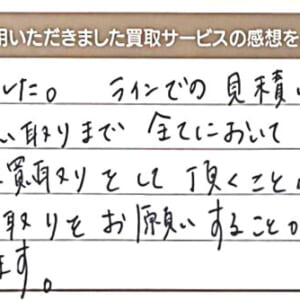 用いただきました買取サービスの感想を
いた。 ラインでの見積
い取りまで 全てにおいて
買取りをして頂くこと
取りをお願いすること
ます。